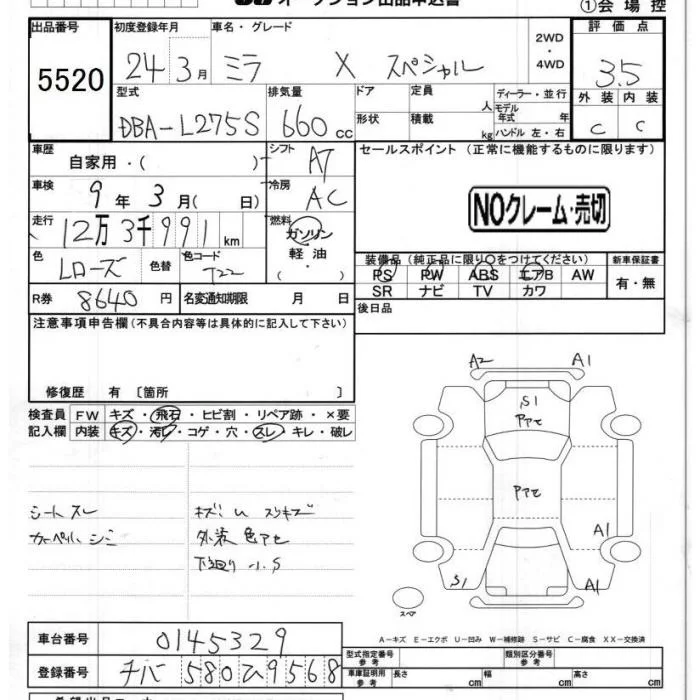 オークション出品申込書
①会 場 控
出品番号
5520
初度登録年月
24年3月
車名・グレード
ミラ X スペシャル
2WD
・
4WD
評 価 点
3.5
外 装 内 装
C C
型式
DBA-L275S
排気量
660 cc
ドア
形状
定員
人
積載
kg
ディーラー・並行
モデル年式 年
ハンドル 左・右
車歴
自家用・( )
シフト
AT
車検
9 年 3 月( 日)
冷房
AC
走行
12万3千991km
燃料
ガソリン
軽 油
・( )
色
Lローズ
色替
色コード
T22
R券 8640 円
名変通知期限 月 日
セールスポイント (正常に機能するものに限ります)
NOクレーム・売切
装備品(純正品に限り○をつけてください)
PS PW ABS エアB AW
SR ナビ TV カワ
新車保証書
有・無
後日品
注意事項申告欄(不具合内容等は具体的に記入して下さい)
修復歴 有 〔箇所 〕
検査員
記入欄
FW キズ・飛石・ヒビ割・リペア跡・×要
内装 キズ・汚レ・コゲ・穴・スレ・キレ・破レ
シートスレ
カーペットシミ
キズ、U スリキズ
外装 色アセ
下廻り 小S
A2
A1
S1
アアセ
アアセ
A1
S1
A1
スペア
A-キズ E-エクボ U-凹み W-補修跡 S-サビ C-腐食 XX-交換済
車台番号 0145329
登録番号 チバ 580 ひ 9568
型式指定番号
参 考
類別区分番号
参 考
車庫証明用
参 考
長さ cm
幅 cm
高さ cm